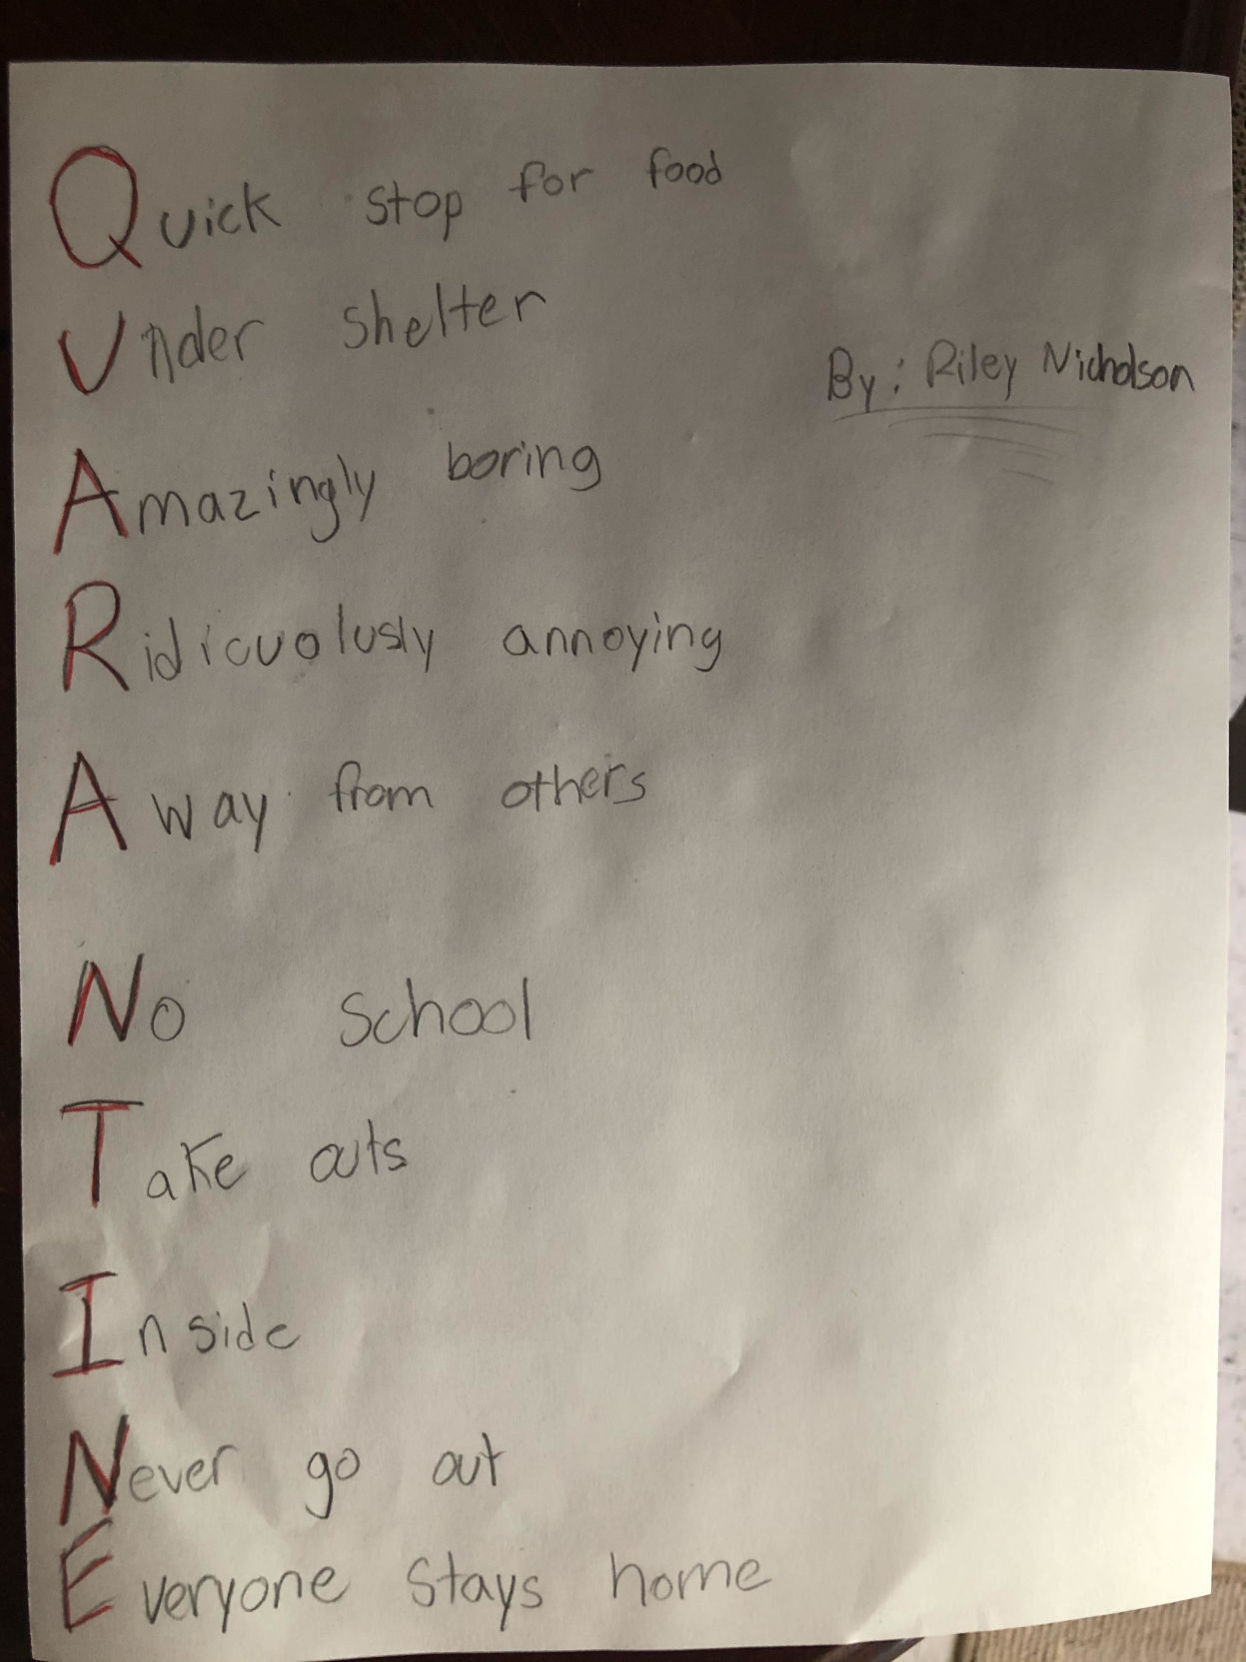 Quick stop for food
Under shelter
By: Riley Nicholson
Amazingly boring
Ridicuolusly annoying
Away from others
No school
Take outs
Inside
Never go out
Everyone stays home